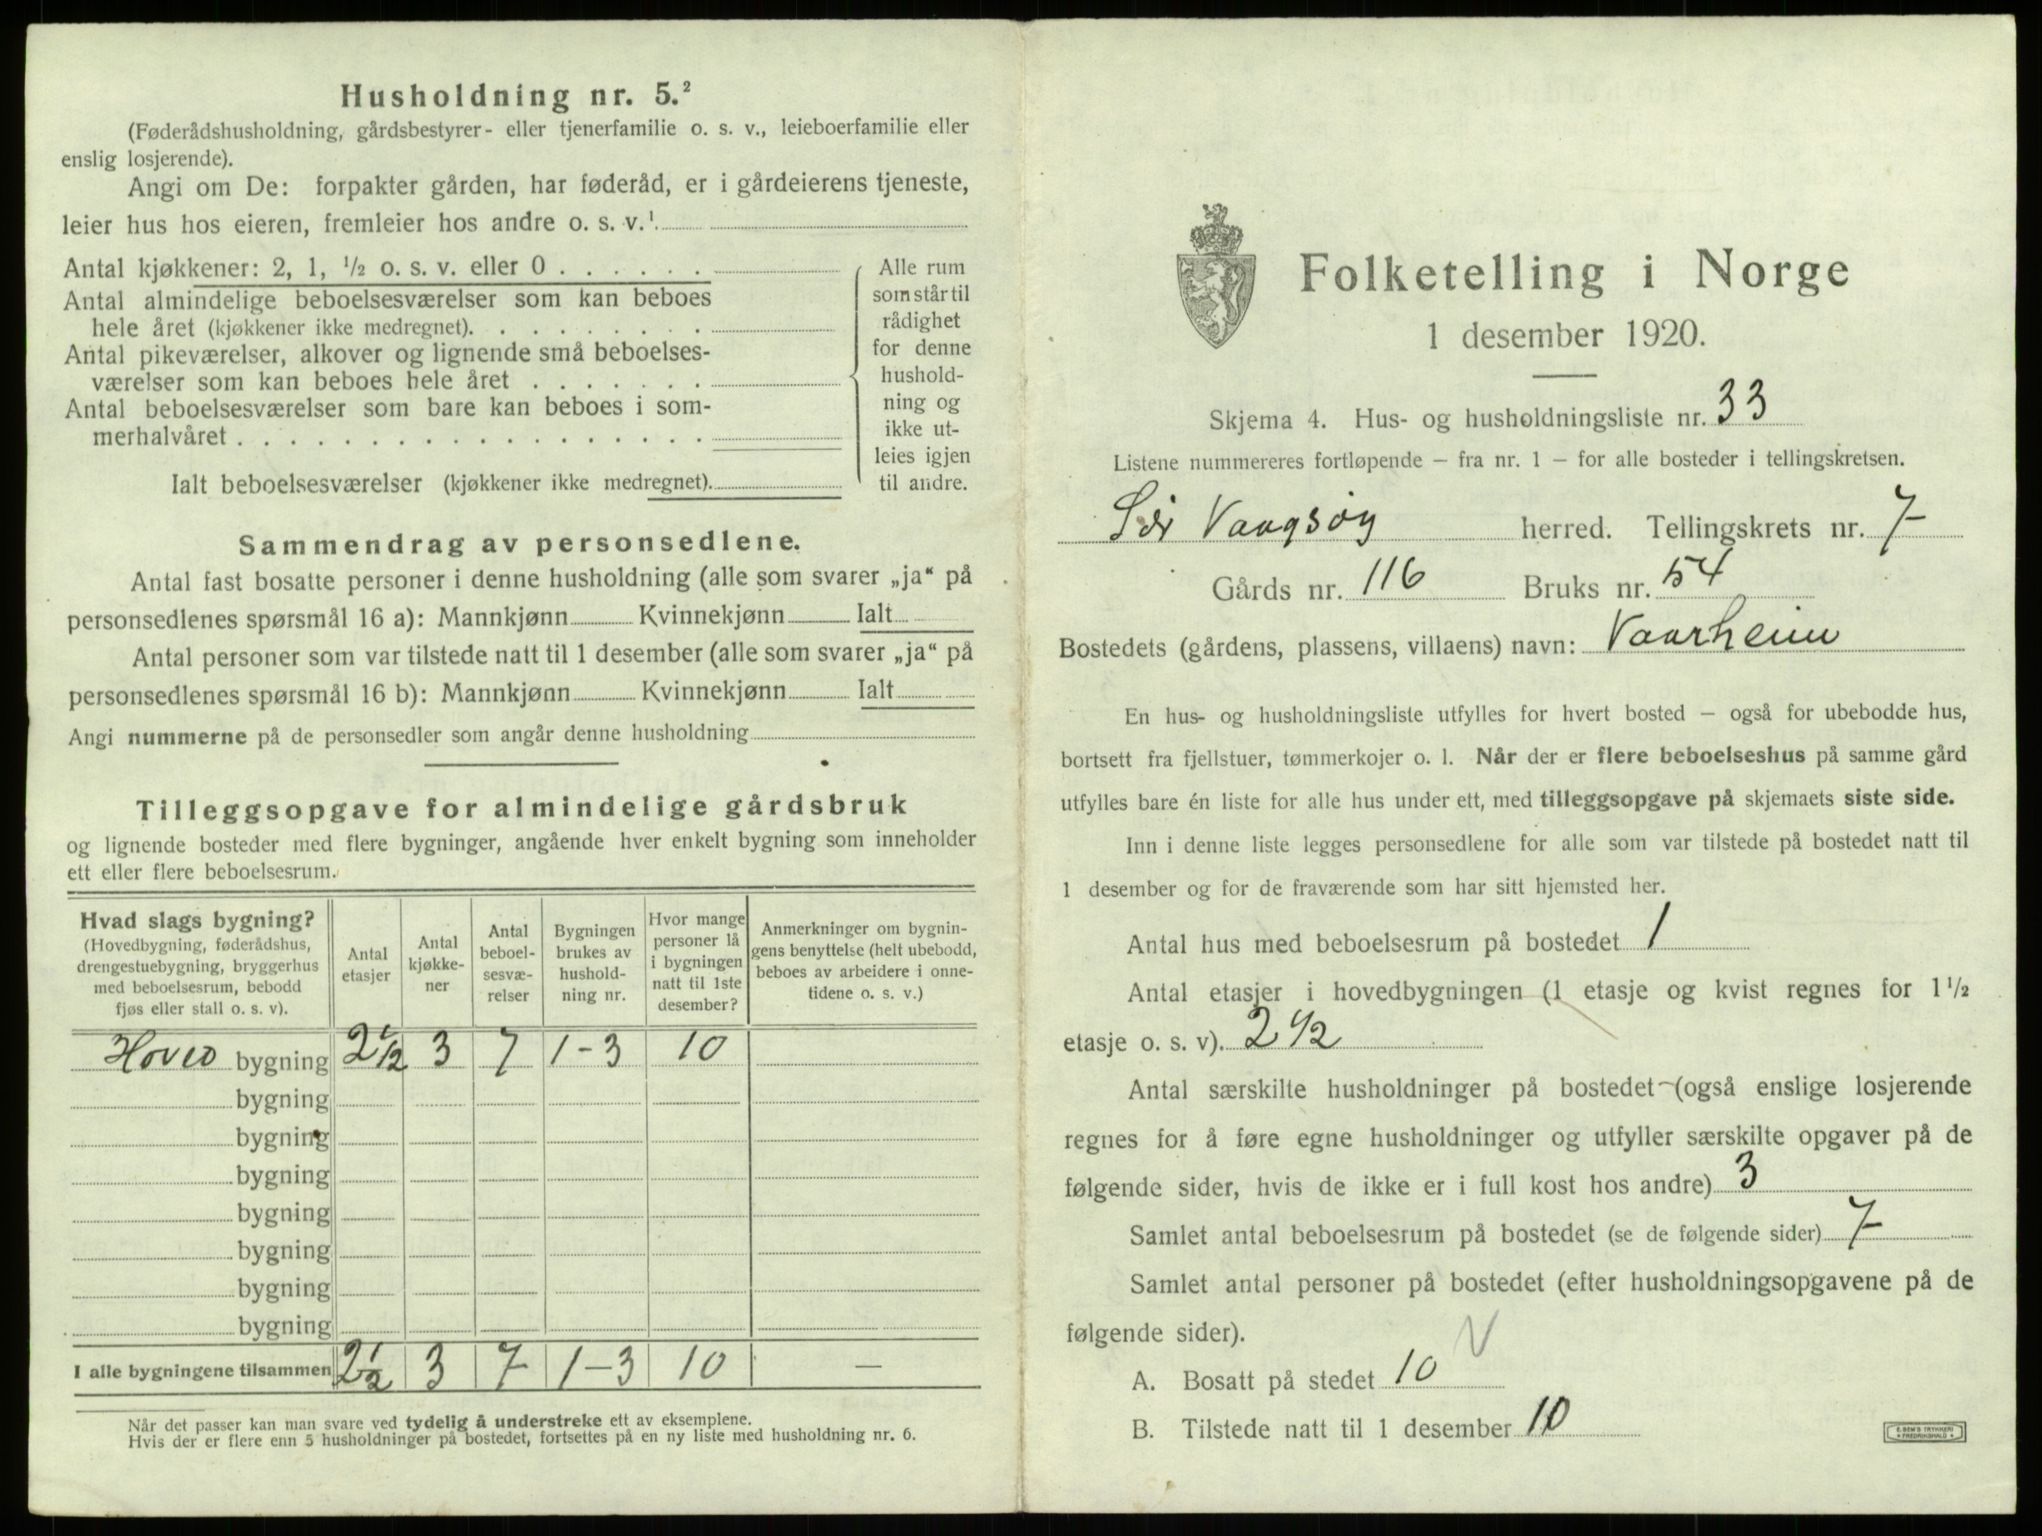 Husholdning nr. 5.²
(Føderådshusholdning, gårdsbestyrer- eller tjenerfamilie o. s. v., leieboerfamilie eller
enslig losjerende).
Angi om De: forpakter gården, har føderåd, er i gårdeierens tjeneste,
leier hus hos eieren, fremleier hos andre o. s. v.¹
Antal kjøkkener: 2, 1, ½ o. s. v. eller 0 . . . . . .
Antal almindelige beboelsesværelser som kan beboes
hele året (kjøkkener ikke medregnet). . . . . . . . .
Antal pikeværelser, alkover og lignende små beboelses-
værelser som kan beboes hele året . . . . . . .
Antal beboelsesværelser som bare kan beboes i som-
merhalvåret . . . . . . . . . . . . . . . . . .
Ialt beboelsesværelser (kjøkkener ikke medregnet).
Alle rum
som står til
rådighet
for denne
hushold-
ning og
ikke ut-
leies igjen
til andre.
Sammendrag av personsedlene.
Antal fast bosatte personer i denne husholdning (alle som svarer „ja“ på
personsedlenes spørsmål 16 a): Mannkjønn Kvinnekjønn Ialt
Antal personer som var tilstede natt til 1 desember (alle som svarer „ja“ på
personsedlenes spørsmål 16 b): Mannkjønn Kvinnekjønn Ialt
Angi nummerne på de personsedler som angår denne husholdning
Tilleggsopgave for almindelige gårdsbruk
og lignende bosteder med flere bygninger, angående hver enkelt bygning som inneholder
ett eller flere beboelsesrum.
Hvad slags bygning?
(Hovedbygning, føderådshus,
drengestuebygning, bryggerhus
med beboelsesrum, bebodd
fjøs eller stall o. s. v).
Antal
etasjer
Antal
kjøkke-
ner
Antal
beboel-
sesvæ-
relser
Bygningen
brukes av
hushold-
ning nr.
Hvor mange
personer lå
i bygningen
natt til 1ste
desember?
Anmerkninger om bygnin-
gens benyttelse (helt ubebodd,
beboes av arbeidere i onne-
tidene o. s. v.)
Hoved bygning 2½ 3 7 1-3 10
bygning
bygning
bygning
bygning
bygning
bygning
bygning
I alle bygningene tilsammen 2½ 3 7 1-3 10 —
Når det passer kan man svare ved tydelig å understreke ett av eksemplene.
Hvis der er flere enn 5 husholdninger på bostedet, fortsettes på en ny liste med husholdning nr. 6.
Folketelling i Norge
1 desember 1920.
Skjema 4. Hus- og husholdningsliste nr. 33
Listene nummereres fortløpende – fra nr. 1 – for alle bosteder i tellingskretsen.
Sør Vaagsøy herred. Tellingskrets nr. 7
Gårds nr. 116 Bruks nr. 54
Bostedets (gårdens, plassens, villaens) navn: Vaarheim
En hus- og husholdningsliste utfylles for hvert bosted – også for ubebodde hus,
bortsett fra fjellstuer, tømmerkojer o. l. Når der er flere beboelseshus på samme gård
utfylles bare én liste for alle hus under ett, med tilleggsopgave på skjemaets siste side.
Inn i denne liste legges personsedlene for alle som var tilstede på bostedet natt til
1 desember og for de fraværende som har sitt hjemsted her.
Antal hus med beboelsesrum på bostedet 1
Antal etasjer i hovedbygningen (1 etasje og kvist regnes for 1½
etasje o. s. v). 2½
Antal særskilte husholdninger på bostedet (også enslige losjerende
regnes for å føre egne husholdninger og utfyller særskilte opgaver på de
følgende sider, hvis de ikke er i full kost hos andre) 3
Samlet antal beboelsesrum på bostedet (se de følgende sider) 7
Samlet antal personer på bostedet (efter husholdningsopgavene på de
følgende sider).
A. Bosatt på stedet 10
B. Tilstede natt til 1 desember 10
E. SEM'S TRYKKERI
FREDRIKSHALD